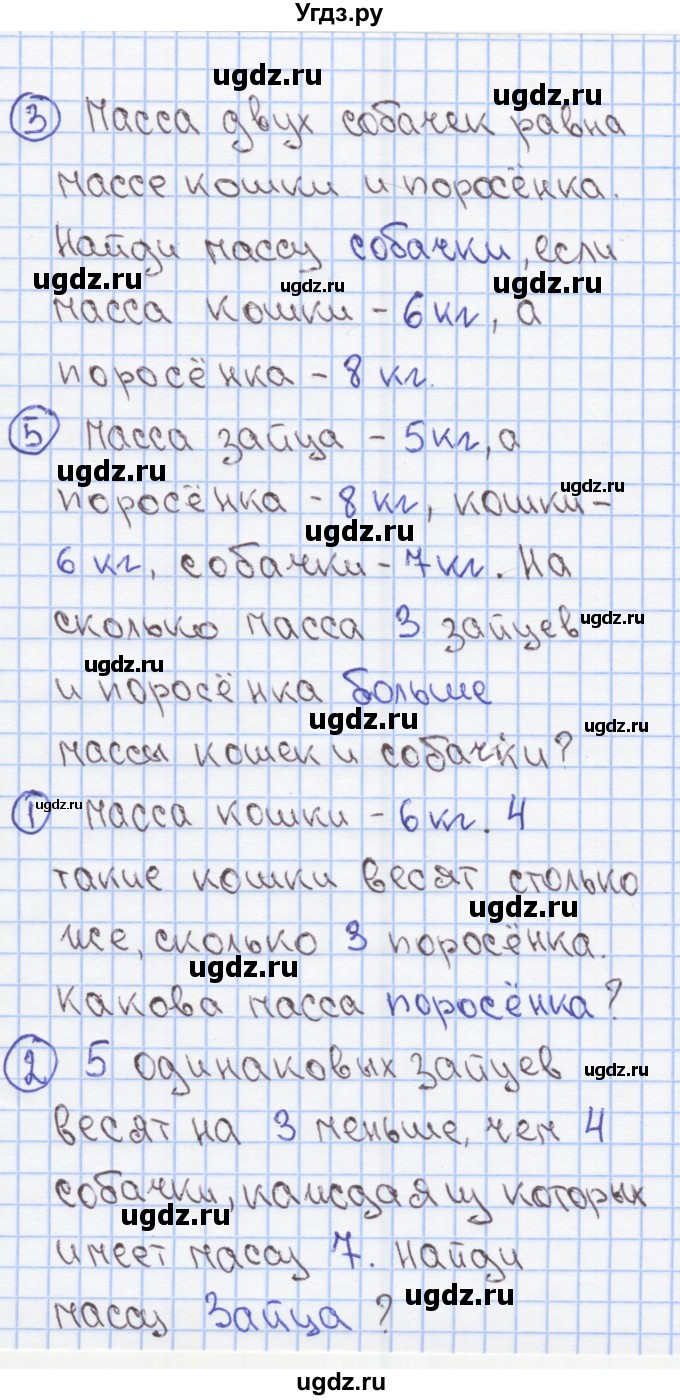 Угдз.ру
ugdz.ru
ugdz.ru
③ Масса двух собачек равна
массе кошки и поросёнка.
Найди массу собачки, если
ugdz.ru ugdz.ru ugdz.ru
масса кошки - 6 кг, а
поросёнка - 8 кг.
⑤ Масса зайца - 5 кг, а
ugdz.ru
ugdz.ru
поросёнка - 8 кг, кошки -
ugdz.ru
6 кг, собачки - 7 кг. На
сколько масса 3 зайцев
ugdz.ru
ugdz.ru
и поросёнка больше
ugdz.ru
ugdz.ru
массы кошек и собачки?
ugdz.ru
① Масса кошки - 6 кг. 4
такие кошки весят столько
ugdz.ru
же, сколько 3 поросёнка.
ugdz.ru
Какова масса поросёнка?
② 5 одинаковых зайцев
ugdz.ru
весят на 3 меньше, чем 4
собачки, каждая из которых
ugdz.ru
имеет массу 7. Найди
ugdz.ru
массу Зайца?
ugdz.ru